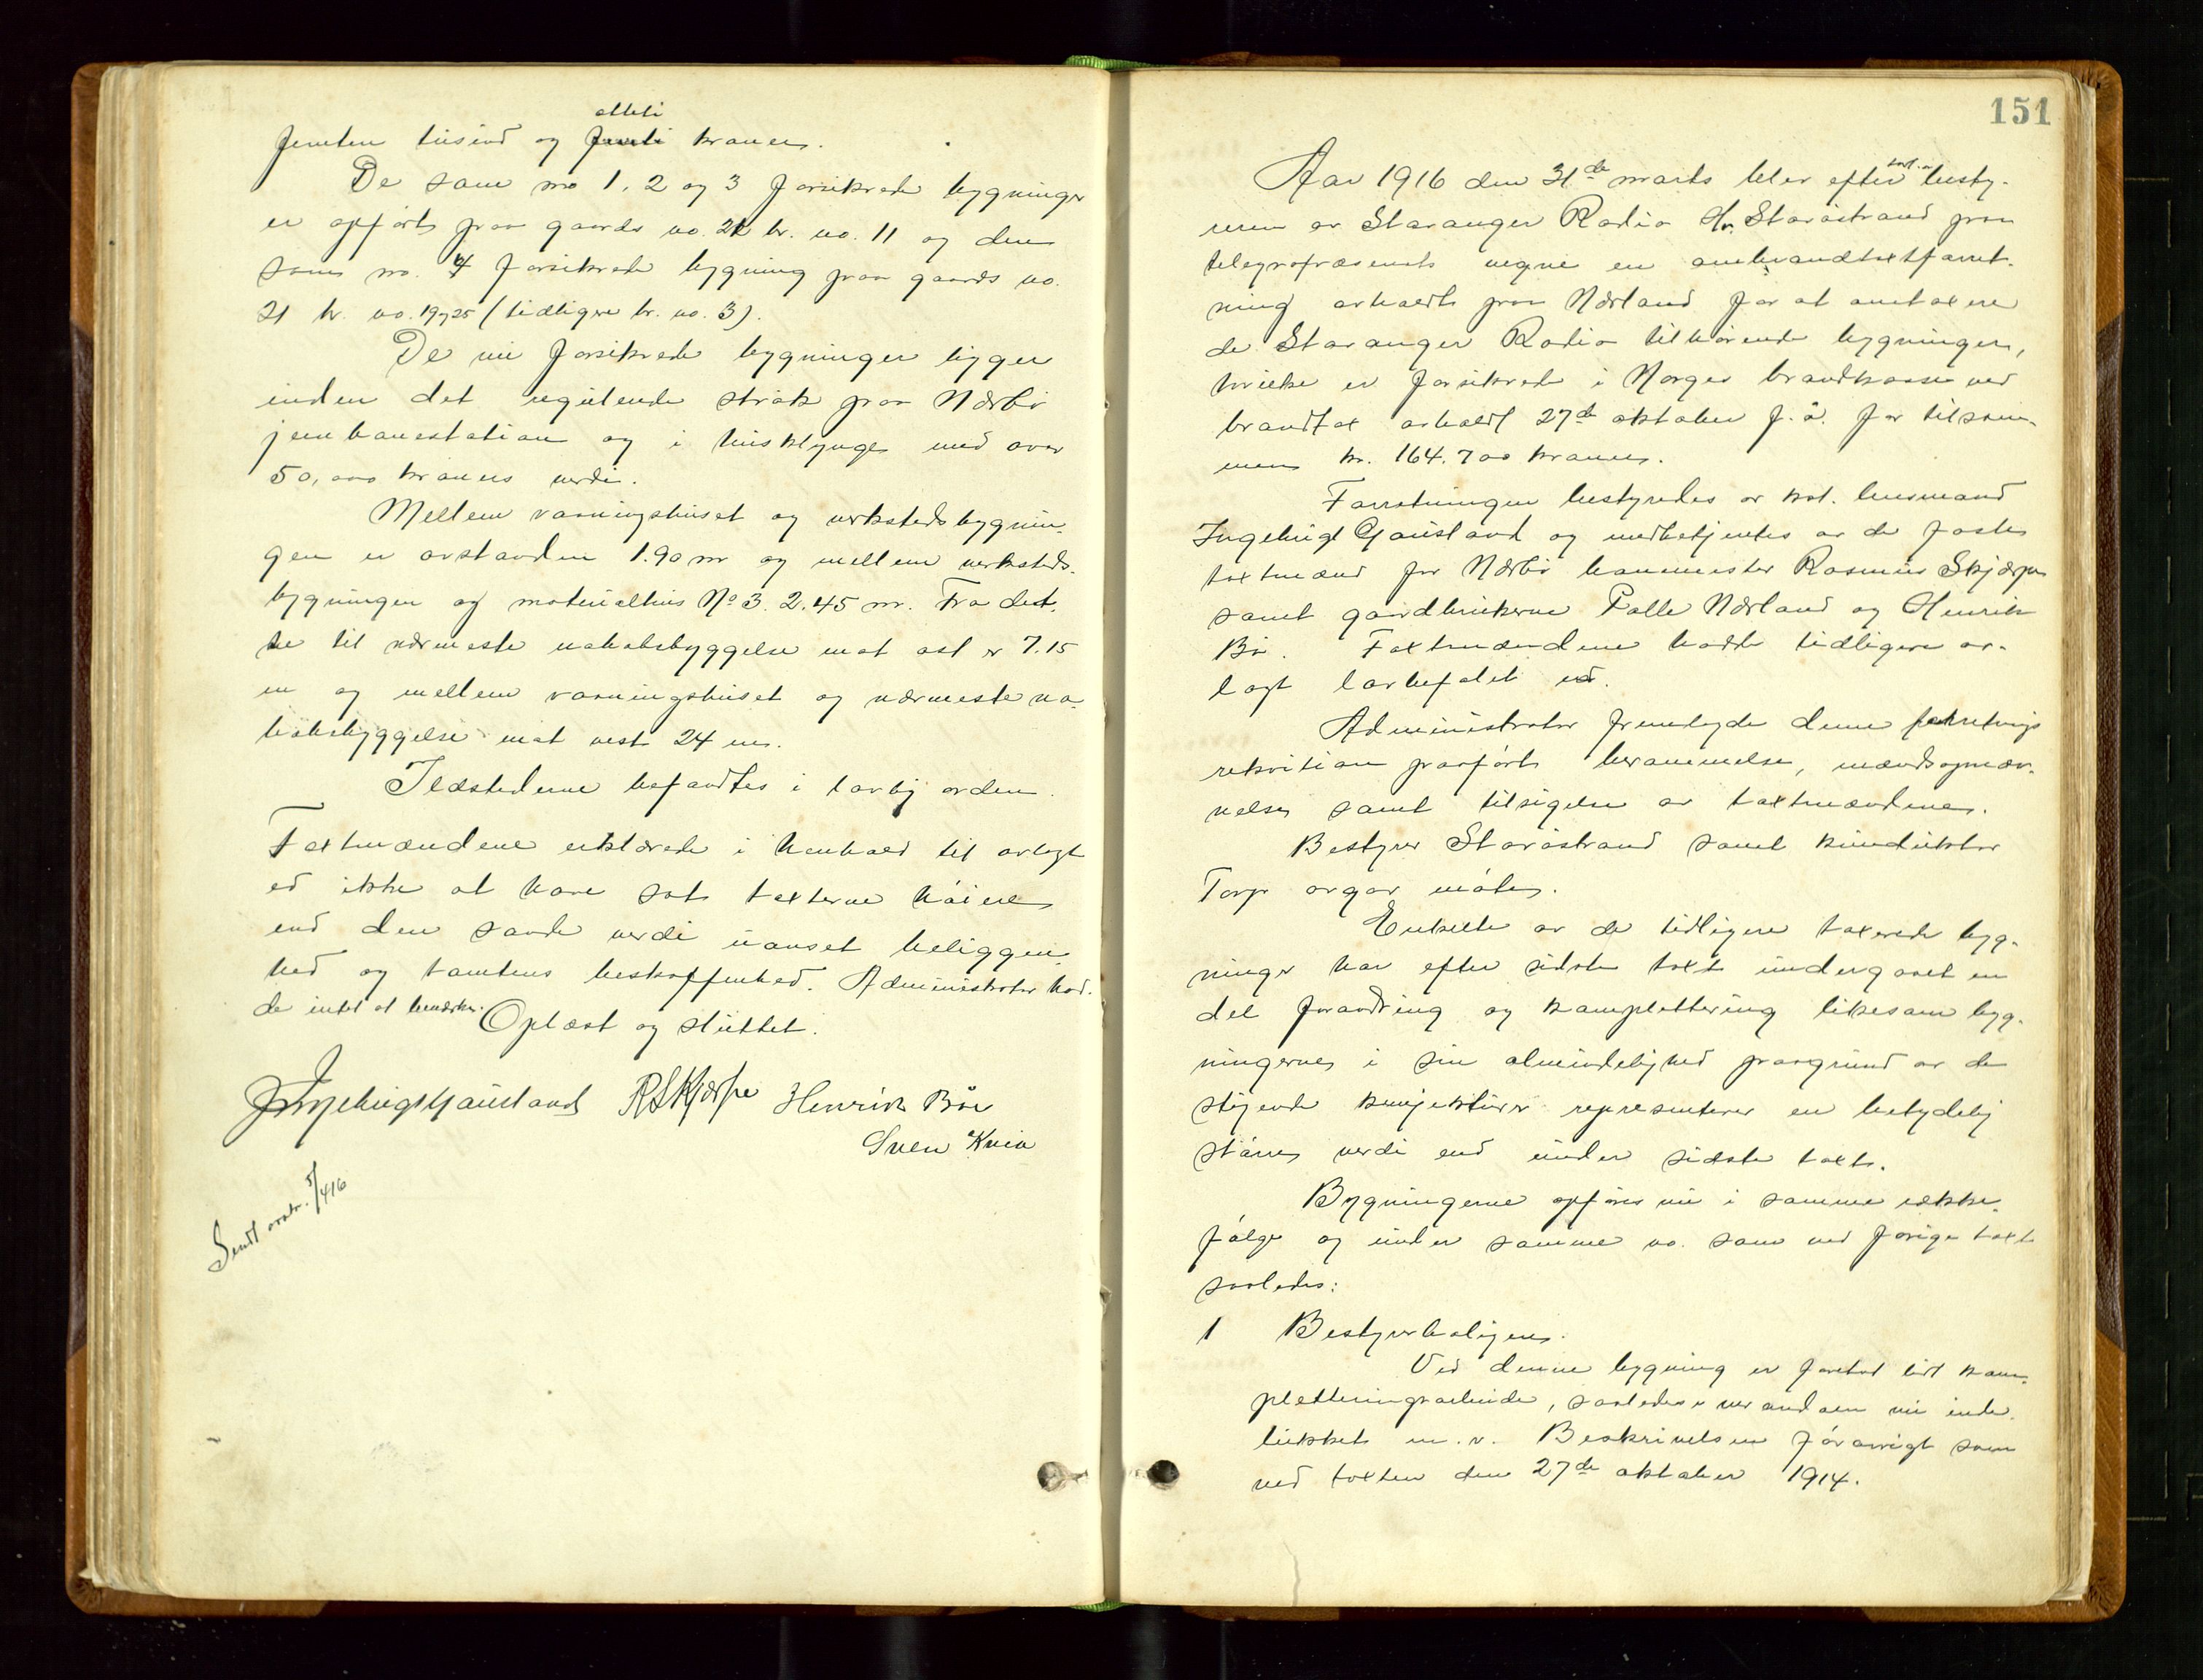 otteti
femten tusind og femti kroner.
De som no 1, 2 og 3 forsikrede bygninger
er opført paa gaards no. 21 br. no. 11 og den
som no. 4 forsikrede bygning paa gaards no.
21 br. no. 19 og 25 (tidligere br. no. 3).
De nu forsikrede bygninger ligger
inden det regulerende strøk paa Nærbø
jernbanestation og i husklynge med over
50,000 kroners verdi.
Mellem vaaningshuset og verkstedsbygnin-
gen er avstanden 1.90 m og mellem verksteds-
bygningen og materialhus No 3. 2.45 m. Fra det-
te til nærmeste nabobebyggelse mot øst er 7.15
m og mellem vaaningshuset og nærmeste na-
bobebyggelse mot vest 24 m.
Ildstederne befandtes i lovlig orden.
Taxtmændene erklærede i henhold til avlagt
ed ikke at have sat taxterne høiere
end den sande verdi uanset beliggen-
hed og tomtens beskaffenhed. Administrator had-
de intet at bemærke. Oplæst og sluttet.
Ingebrigt Gausland RSkjærpe Henrik Bøe
Sven Kvia
Sendt avskr. 5/4 16
151
Aar 1916 den 31de marts blev efter besty-
reren av Stavanger Radio Hr. Starøstrand paa
telegrafvæsenets vegne en ombrandtaxtforret-
ning avholdt paa Nærland for at omtaxere
de Stavanger Radio tilhørende bygninger,
hvilke er forsikrede i Norges brandkasse ved
brandtax avholdt 27de oktober f. å. for tilsam-
men kr. 164.700 kroner.
Forretningen bestyredes av kst. lensmand
Ingebrigt Gausland og medbetjentes av de faste
taxtmænd for Nærbø banemester Rasmus Skjærpe
samt gaardbrukerne Palle Nærland og Henrik
Bø. Taxtmændene hadde tidligere av-
lagt lovbefalet ed.
Administrator fremlagde denne forretnings
rekvisition paaført berammelse, mændsopnæv-
nelse samt tilsigelse av taxtmændene.
Bestyrer Starøstrand samt konduktør
Torp avgav møte.
Enkelte av de tidligere taxerede byg-
ninger har efter sidste taxt undergaaet en
del forandring og komplettering likesom byg-
ningerne i sin almindelighed paagrund av de
stigende konjekturer representerer en betydelig
større verdi end under sidste taxt.
Bygningerne opføres nu i samme række-
følge og under samme no. som ved forrige taxt
saaledes:
1 Bestyrerboligen.
Ved denne bygning er foretat litt kom-
pletteringsarbeide, saaledes er verandaen nu inde-
lukket m. v. Beskrivelsen forøvrigt som
ved taxten den 27de oktober 1914.